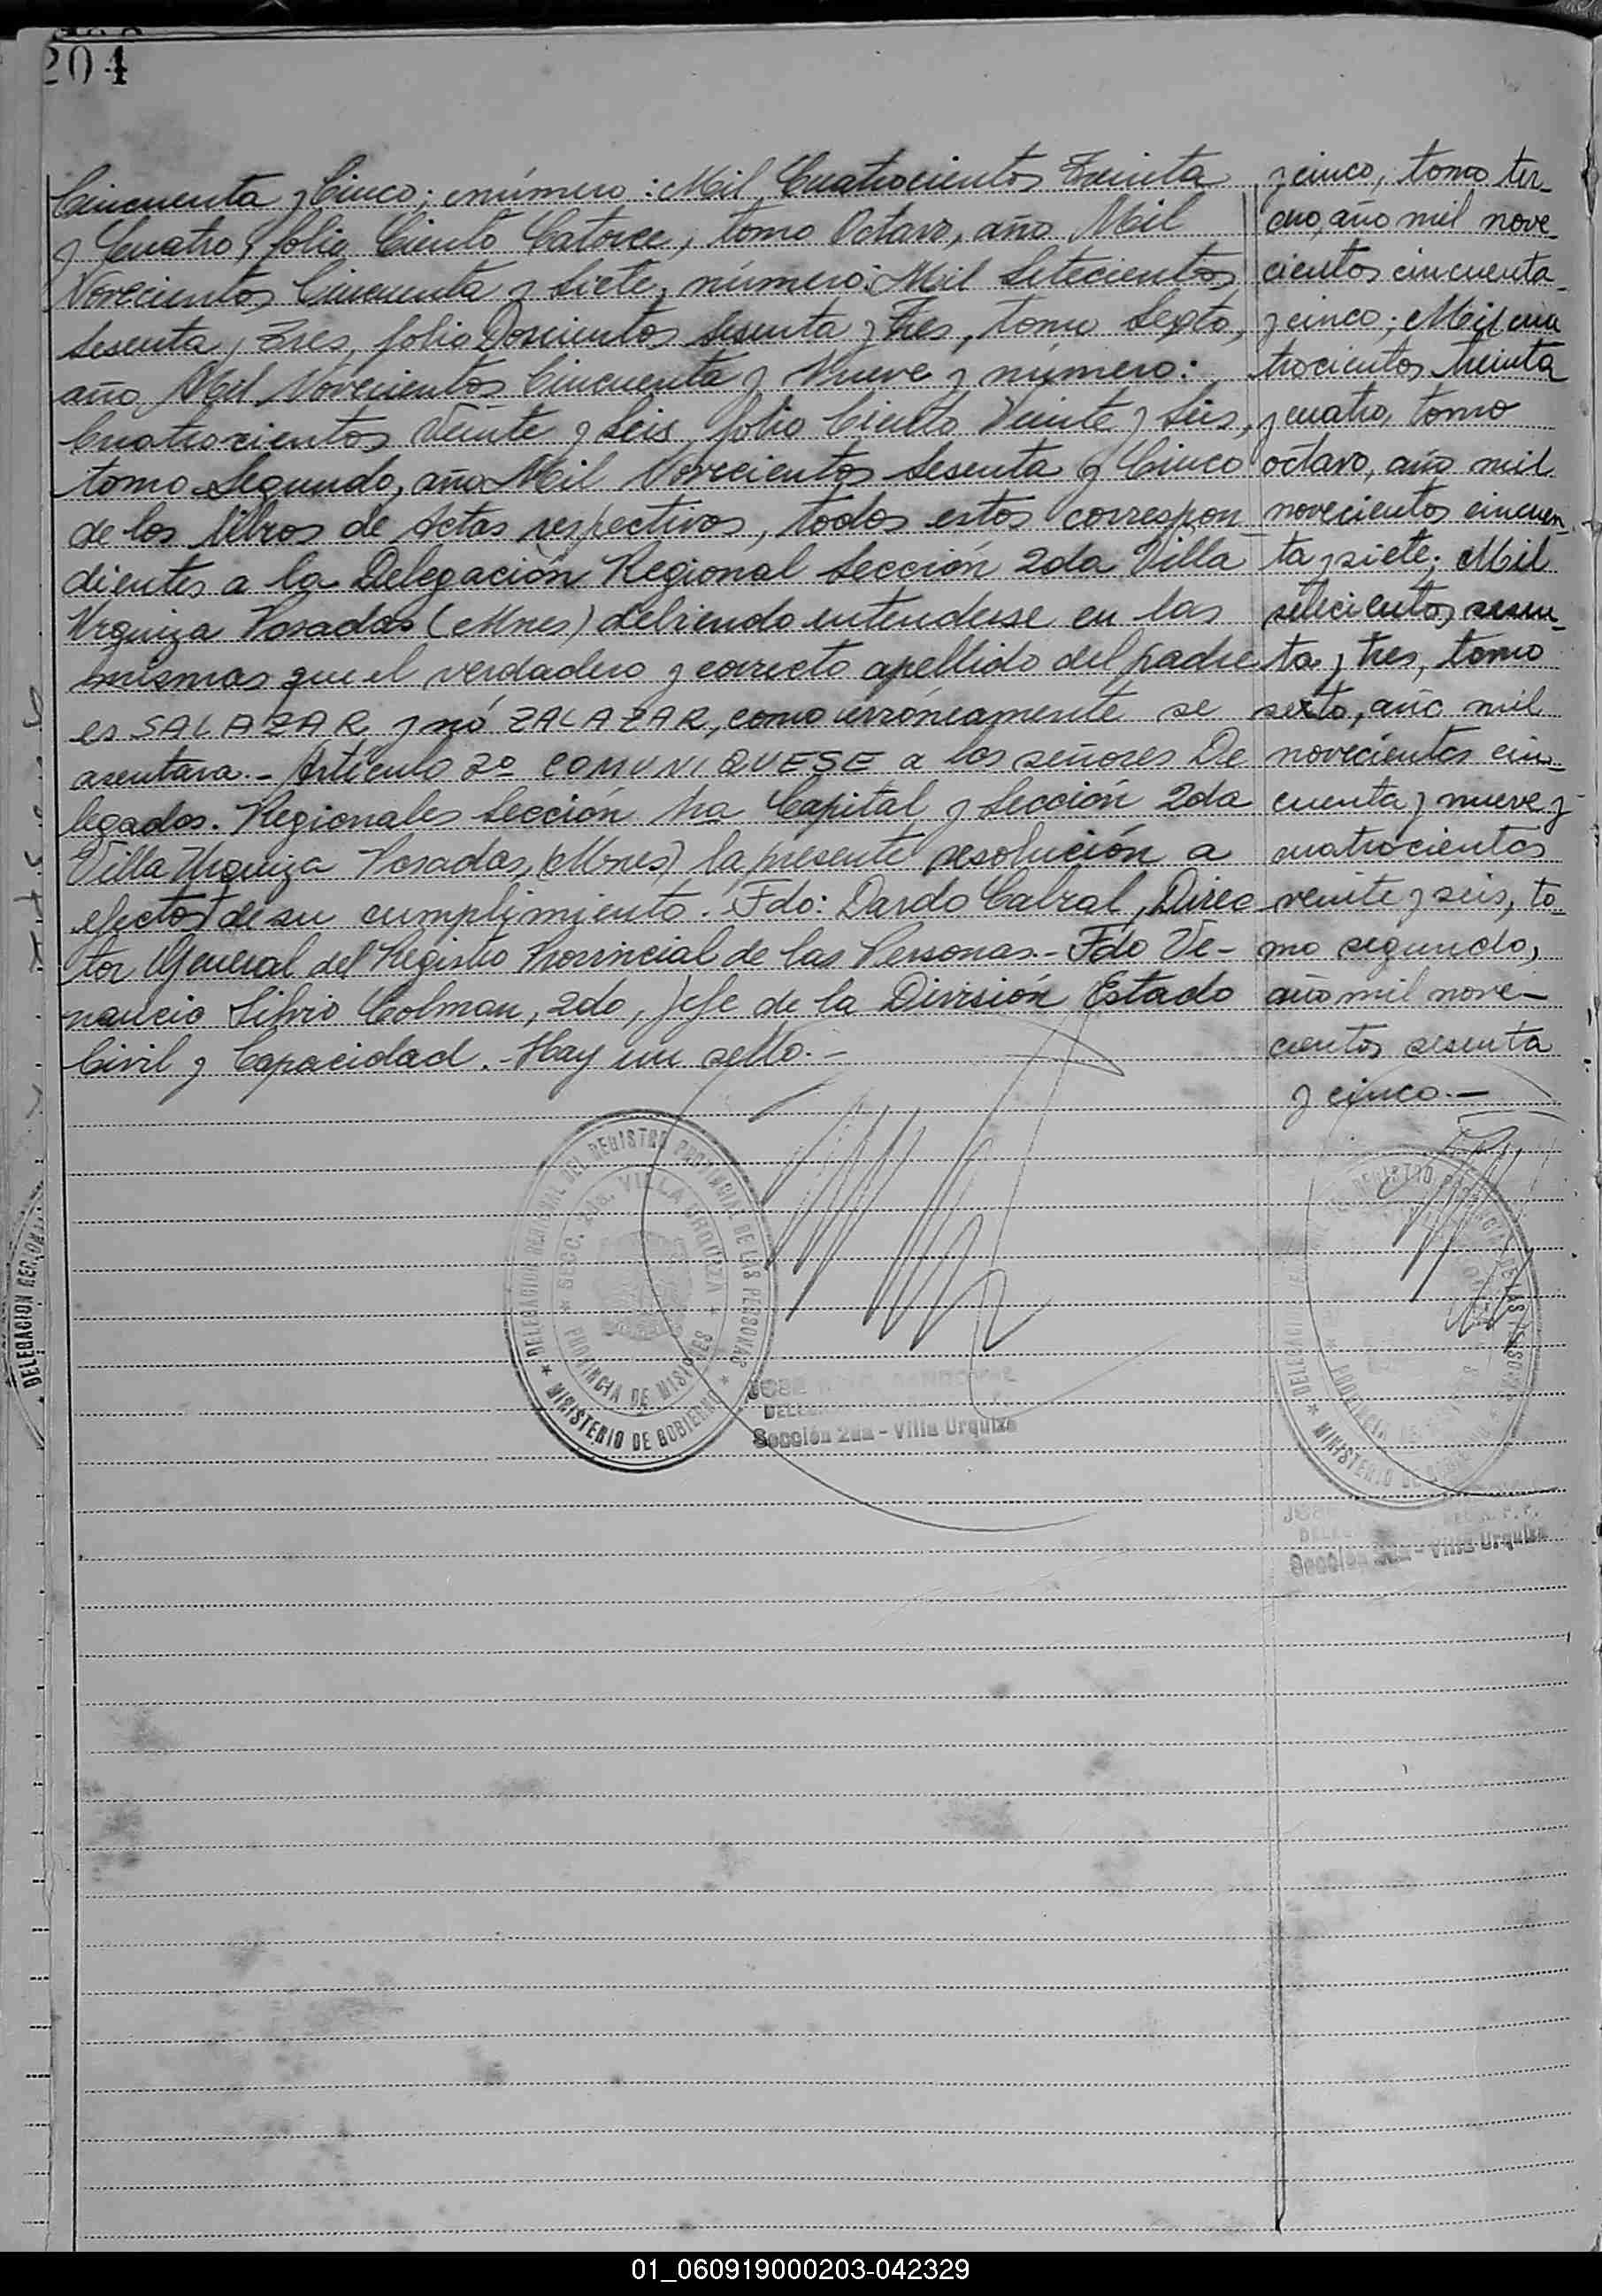 204
Cincuenta y Cinco; número: Mil Cuatrocientos Treinta
y Cuatro, folio Ciento Catorce, tomo Octavo, año Mil
Novecientos Cincuenta y Siete, número: Mil Setecientos
Sesenta y Tres, folio Doscientos Sesenta y Tres, tomo Sexto,
año Mil Novecientos Cincuenta y Nueve y número:
Cuatrocientos Veinte y Seis, folio Ciento Veinte y Seis,
tomo Segundo, año Mil Novecientos Sesenta y Cinco
de los libros de Actas respectivos, todos estos correspon
dientes a la Delegación Regional Sección 2da Villa
Urquiza Posadas (Mnes) debiendo entenderse en las
mismas que el verdadero y correcto apellido del padre
es SALAZAR y nó ZALAZAR, como erróneamente se
asentara.- Artículo 2º COMUNIQUESE a los señores De
legados. Regionales Sección 1ra Capital y Sección 2da
Villa Urquiza Posadas, (Mnes) la presente resolución a
efectos de su cumplimiento. Fdo: Dardo Cabral, Direc
tor General del Registro Provincial de las Personas.- Fdo Ve-
nancio Silvio Colman, 2do, Jefe de la División Estado
Civil y Capacidad. - Hay un sello.-
y cinco, tomo ter-
cero, año mil nove-
cientos cincuenta
y cinco; Mil cua
trocientos treinta
y cuatro, tomo
octavo, año mil
novecientos cincuen-
ta y siete; Mil
setecientos sesen-
ta y tres, tomo
sexto, año mil
novecientos cin-
cuenta y nueve y
cuatrocientos
veinte y seis, to-
mo segundo,
año mil nove-
cientos sesenta
y cinco.-
DELEGACION REGIONAL DEL REGISTRO PROVINCIAL DE LAS PERSONAS
* MINISTERIO DE GOBIERNO *
* SECC. 2da. VILLA URQUIZA *
PROVINCIA DE MISIONES
JOSE
Sección 2da - Villa Urquiza
DELEGACION REGIONAL DEL REGISTRO PROVINCIAL DE LAS PERSONAS
* MINISTERIO DE GOBIERNO *
PROVINCIA DE MISIONES
Sección 2da - Villa Urquiza
DELEGACION REGIONAL
01_060919000203-042329